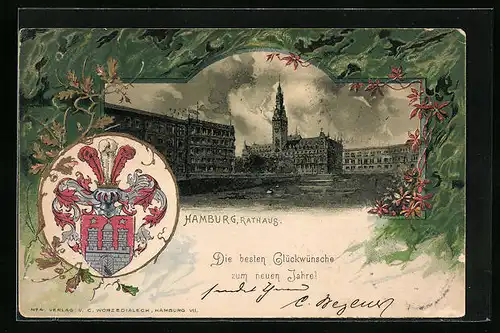 HAMBURG, RATHAUS.
Die besten Glückwünsche
zum neuen Jahre!
sendet Ihnen
VERLAG V. C. WORZEDIALECK, HAMBURG VII.